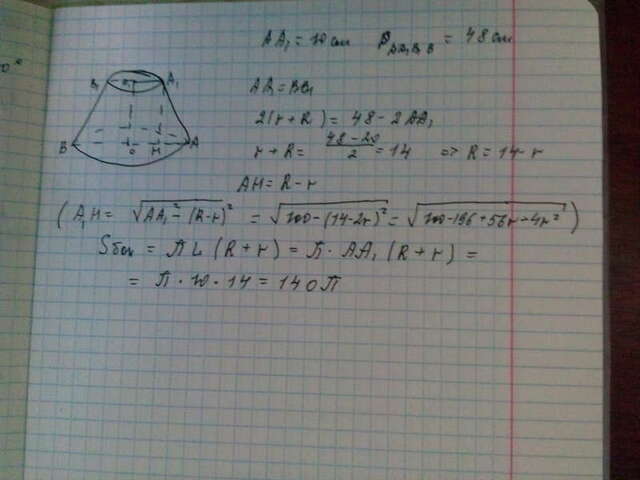 AA₁ = 10 см   P_AA₁B₁B = 48 см
0°
B₁ O₁ A₁
AA₁ = BB₁
2(r + R) = 48 - 2AA₁
r + R = (48 - 20)/2 = 14 => R = 14 - r
B O H A
AH = R - r
(A₁H = √(AA₁² - (R-r)²) = √(100 - (14-2r)²) = √(100 - 196 + 56r - 4r²))
Sбок = πL (R + r) = π · AA₁ (R + r) =
= π · 10 · 14 = 140π